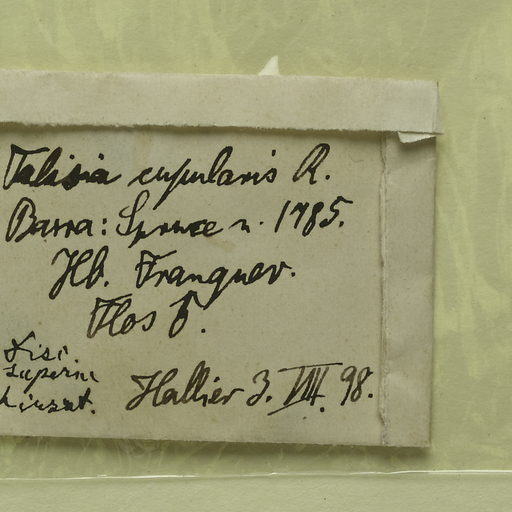 Talisia cupularis R.
Barra: Spruce n. 1785.
Hb. Franquev.
Flos ♂.
Disci
superne
hirsut.
Hallier 3. VIII. 98.